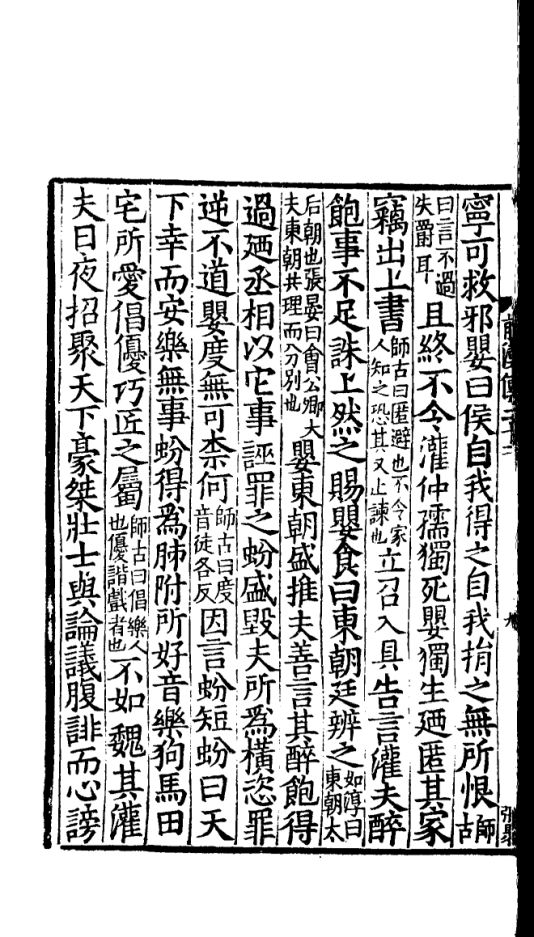 寧可救邪嬰曰侯自我得之自我捐之無所恨師古
曰言不過失爵耳且終不令灌仲孺獨死嬰獨生廼匿其家
竊出上書師古曰匿避也不令家人知之恐其又止諫也立召入具告言灌夫醉
飽事不足誅上然之賜嬰食曰東朝廷辨之如淳曰東朝太
后朝也張晏曰會公卿大夫東朝共理而分別也嬰東朝盛推夫善言其醉飽得
過廼丞相以它事誣罪之蚡盛毀夫所為橫恣罪
逆不道嬰度無可柰何師古曰度音徒各反因言蚡短蚡曰天
下幸而安樂無事蚡得為肺附所好音樂狗馬田
宅所愛倡優巧匠之屬師古曰倡樂人也優諧戲者也不如魏其灌
夫日夜招聚天下豪桀壯士與論議腹誹而心謗